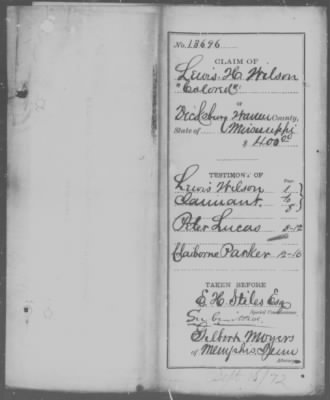 No. 13696
CLAIM OF
Lewis H. Wilson
"Colored"
OF
Vicksburg Warren County,
State of Mississippi
$ 400 00
TESTIMONY OF
Page
Lewis Wilson 1
Claimant 6
8
Peter Lucas 8-12
Claiborne Parker 12-16
TAKEN BEFORE
E. H. Stiles Esq
Special Commissioner.
Submitted
Gilbert Moyers
of Memphis, Tenn
Attorney.